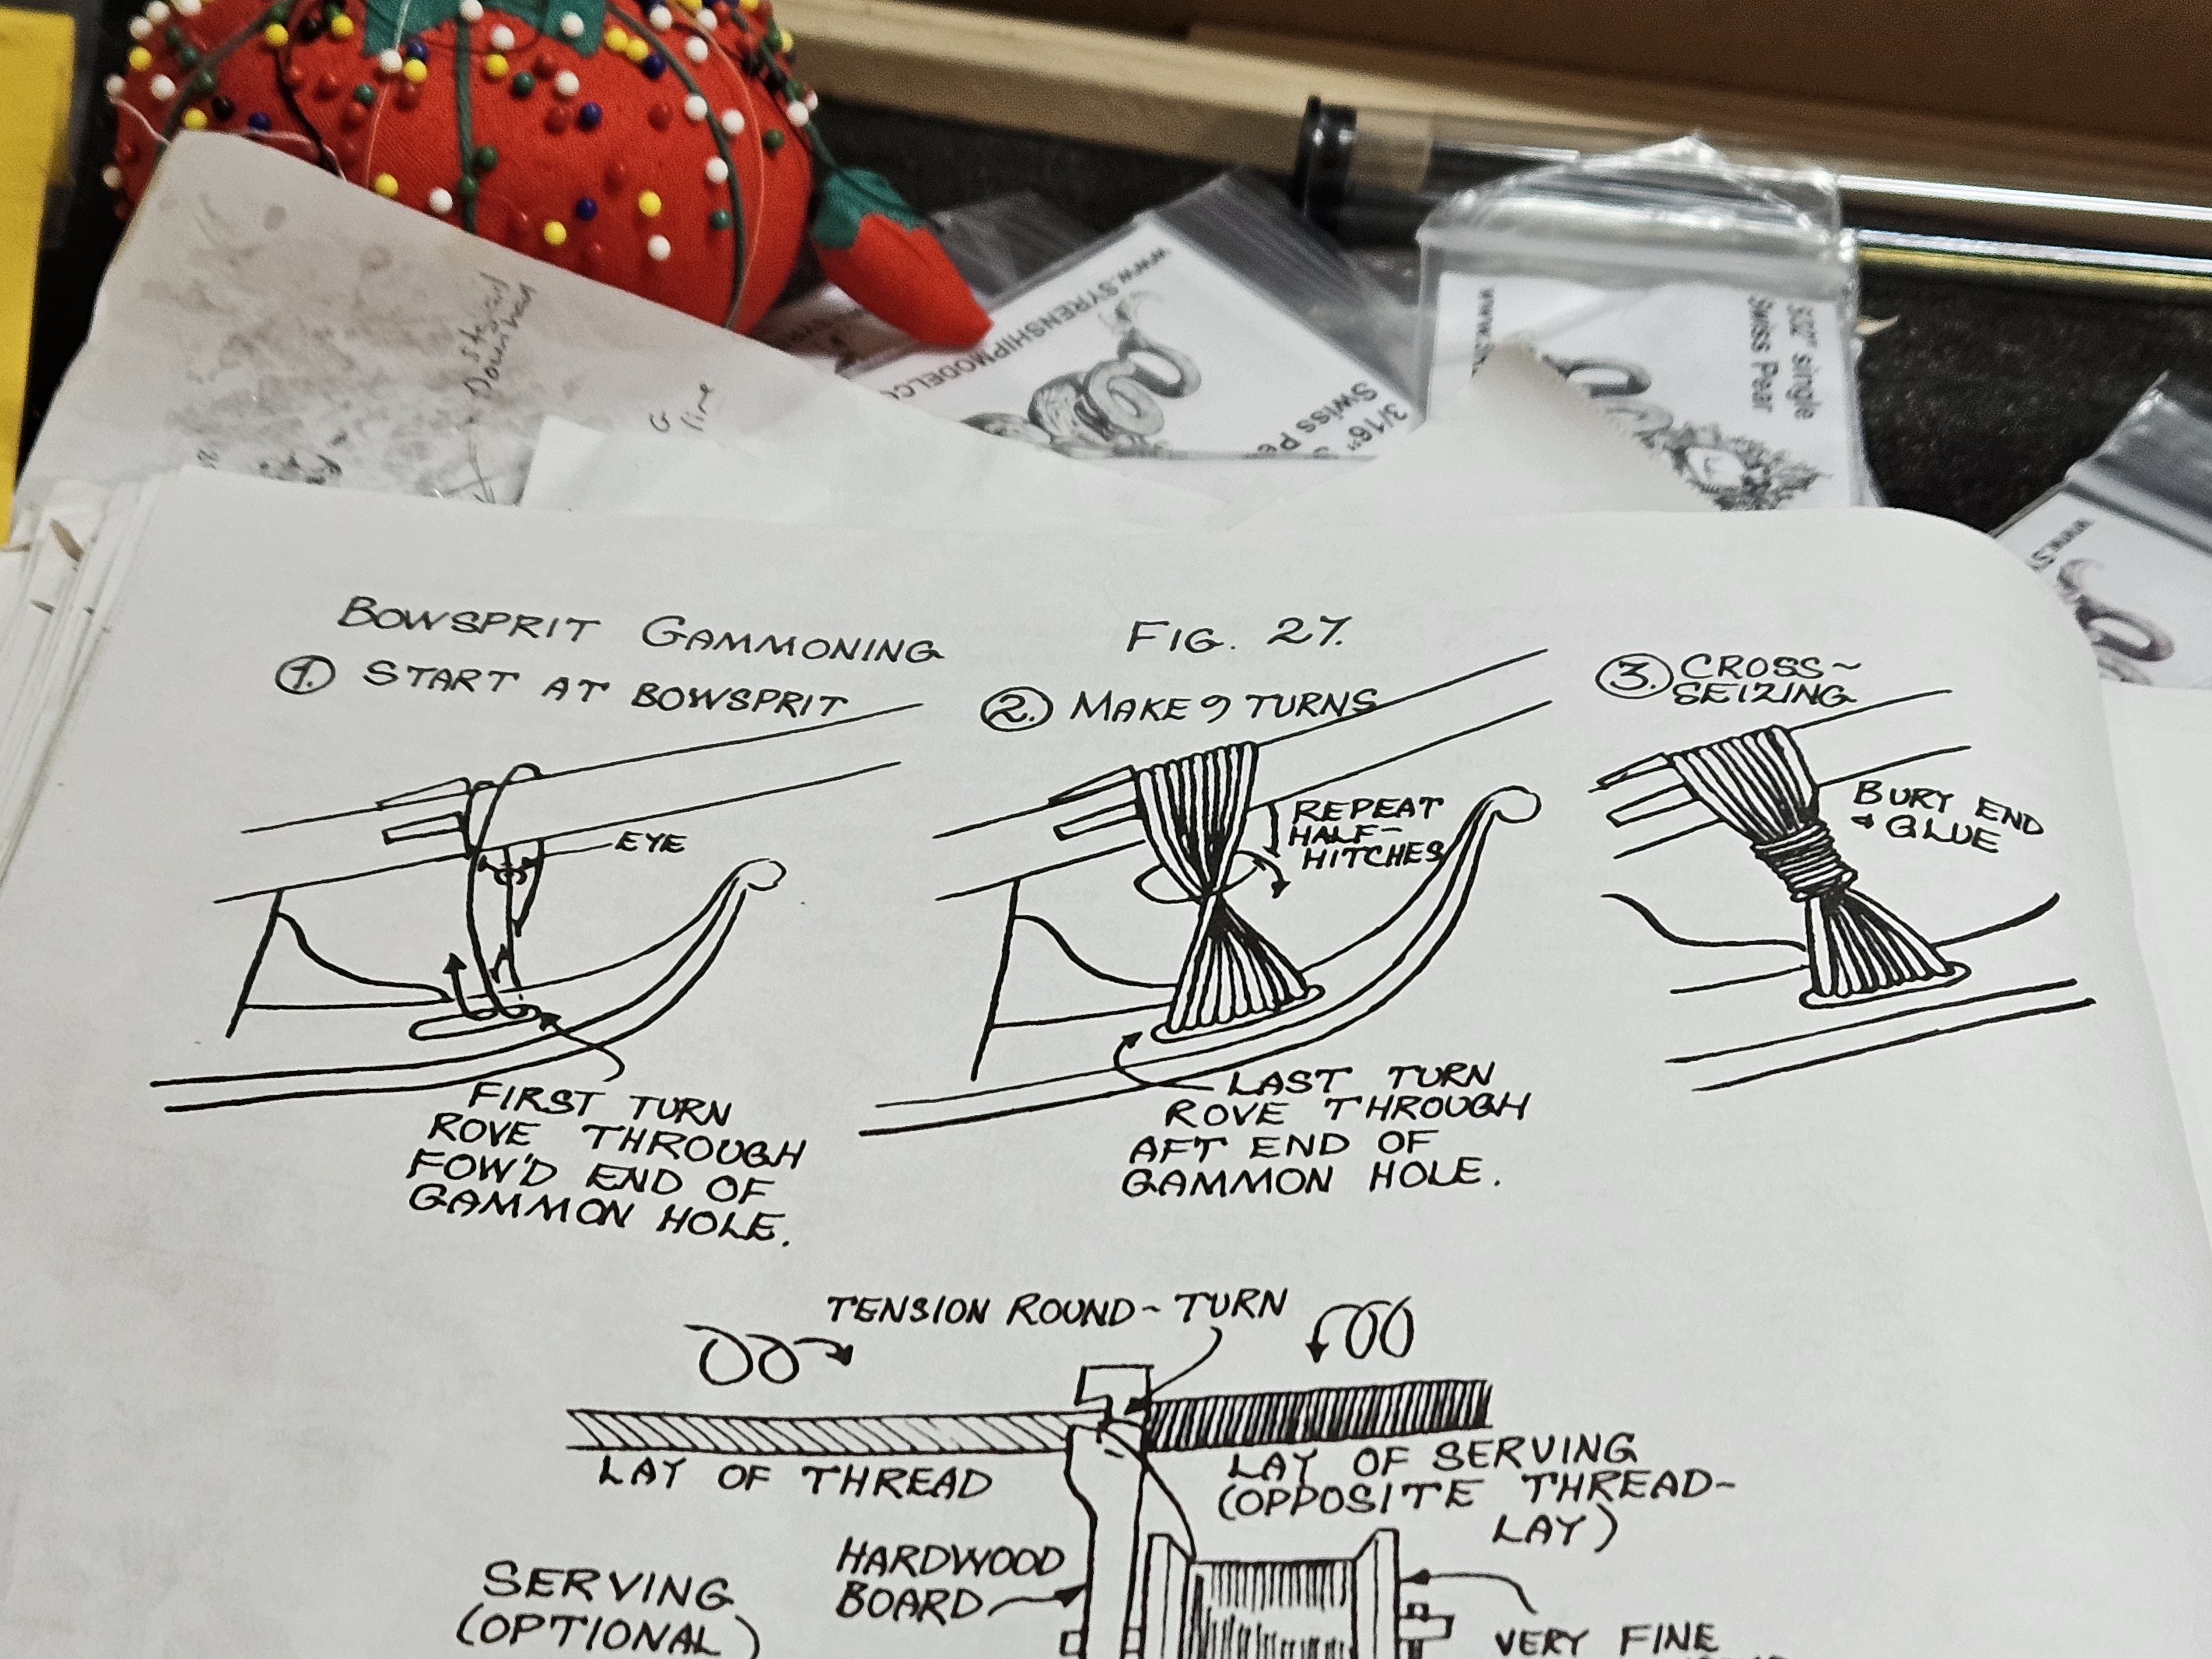 Downhaul
line
www.SYRENSHIPMODEL.CO
3/16"
Swiss Pe
3/32" single
Swiss Pear
www.s
BOWSPRIT GAMMONING
FIG. 27.
1. START AT BOWSPRIT
EYE
FIRST TURN
ROVE THROUGH
FOW'D END OF
GAMMON HOLE.
2. MAKE 9 TURNS
REPEAT
HALF-
HITCHES
LAST TURN
ROVE THROUGH
AFT END OF
GAMMON HOLE.
3. CROSS~
SEIZING
BURY END
& GLUE
TENSION ROUND~TURN
LAY OF THREAD
LAY OF SERVING
(OPPOSITE THREAD~
LAY)
HARDWOOD
BOARD
SERVING
(OPTIONAL)
VERY FINE